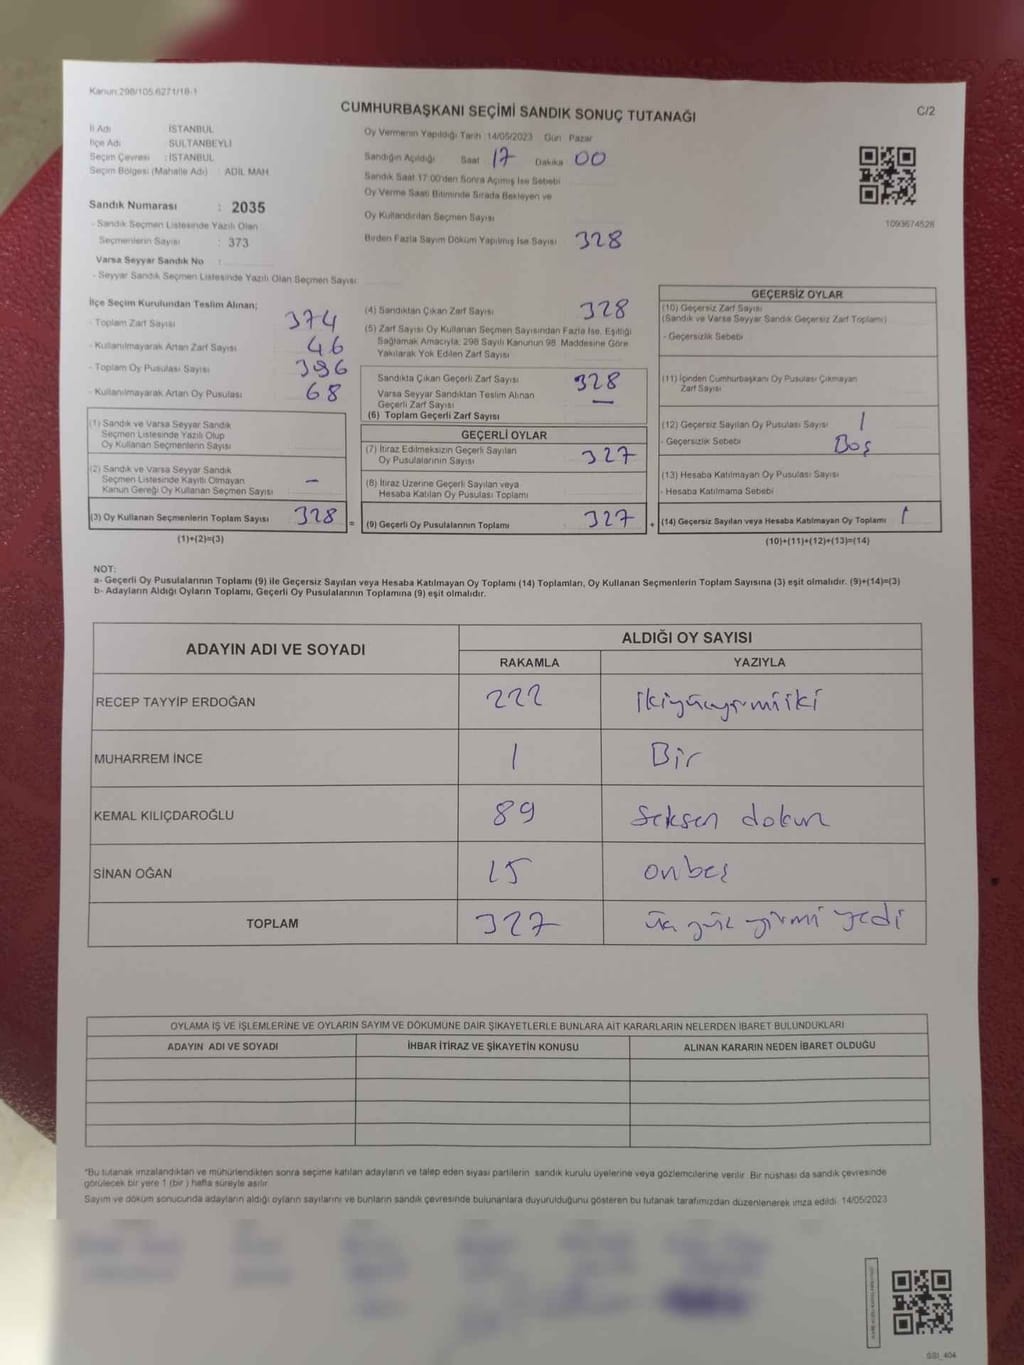 Kanun.298/105.6271/18-1
CUMHURBAŞKANI SEÇİMİ SANDIK SONUÇ TUTANAĞI
C/2
İl Adı İSTANBUL
İlçe Adı SULTANBEYLİ
Seçim Çevresi : İSTANBUL
Seçim Bölgesi (Mahalle Adı) : ADİL MAH
Sandık Numarası : 2035
- Sandık Seçmen Listesinde Yazılı Olan
Seçmenlerin Sayısı : 373
Varsa Seyyar Sandık No :
- Seyyar Sandık Seçmen Listesinde Yazılı Olan Seçmen Sayısı
Oy Vermenin Yapıldığı Tarih :14/05/2023 Gün Pazar
Sandığın Açıldığı Saat 17 Dakika 00
Sandık Saat 17:00'den Sonra Açılmış İse Sebebi
Oy Verme Saati Bitiminde Sırada Bekleyen ve
Oy Kullandırılan Seçmen Sayısı
Birden Fazla Sayım Döküm Yapılmış İse Sayısı 328
1093674528
İlçe Seçim Kurulundan Teslim Alınan;
- Toplam Zarf Sayısı 374
- Kullanılmayarak Artan Zarf Sayısı 46
- Toplam Oy Pusulası Sayısı 396
- Kullanılmayarak Artan Oy Pusulası 68
(1) Sandık ve Varsa Seyyar Sandık
Seçmen Listesinde Yazılı Olup
Oy Kullanan Seçmenlerin Sayısı
(2) Sandık ve Varsa Seyyar Sandık
Seçmen Listesinde Kayıtlı Olmayan
Kanun Gereği Oy Kullanan Seçmen Sayısı -
(3) Oy Kullanan Seçmenlerin Toplam Sayısı 328 =
(1)+(2)=(3)
(4) Sandıktan Çıkan Zarf Sayısı 328
(5) Zarf Sayısı Oy Kullanan Seçmen Sayısından Fazla İse, Eşitliği
Sağlamak Amacıyla; 298 Sayılı Kanunun 98. Maddesine Göre
Yakılarak Yok Edilen Zarf Sayısı
Sandıkta Çıkan Geçerli Zarf Sayısı 328
Varsa Seyyar Sandıktan Teslim Alınan
Geçerli Zarf Sayısı —
(6) Toplam Geçerli Zarf Sayısı
GEÇERLİ OYLAR
(7) İtiraz Edilmeksizin Geçerli Sayılan
Oy Pusulalarının Sayısı 327
(8) İtiraz Üzerine Geçerli Sayılan veya
Hesaba Katılan Oy Pusulası Toplamı
(9) Geçerli Oy Pusulalarının Toplamı 327 +
GEÇERSİZ OYLAR
(10) Geçersiz Zarf Sayısı
(Sandık ve Varsa Seyyar Sandık Geçersiz Zarf Toplamı)
- Geçersizlik Sebebi
(11) İçinden Cumhurbaşkanı Oy Pusulası Çıkmayan
Zarf Sayısı
(12) Geçersiz Sayılan Oy Pusulası Sayısı 1
- Geçersizlik Sebebi Boş
(13) Hesaba Katılmayan Oy Pusulası Sayısı
- Hesaba Katılmama Sebebi
(14) Geçersiz Sayılan veya Hesaba Katılmayan Oy Toplamı 1
(10)+(11)+(12)+(13)=(14)
NOT:
a- Geçerli Oy Pusulalarının Toplamı (9) ile Geçersiz Sayılan veya Hesaba Katılmayan Oy Toplamı (14) Toplamları, Oy Kullanan Seçmenlerin Toplam Sayısına (3) eşit olmalıdır. (9)+(14)=(3)
b- Adayların Aldığı Oyların Toplamı, Geçerli Oy Pusulalarının Toplamına (9) eşit olmalıdır.
ADAYIN ADI VE SOYADI ALDIĞI OY SAYISI
RAKAMLA YAZIYLA
RECEP TAYYİP ERDOĞAN 222 ikiyüzyirmiiki
MUHARREM İNCE 1 Bir
KEMAL KILIÇDAROĞLU 89 Seksen dokuz
SİNAN OĞAN 15 onbeş
TOPLAM 327 üç yüz yirmi yedi
OYLAMA İŞ VE İŞLEMLERİNE VE OYLARIN SAYIM VE DÖKÜMÜNE DAİR ŞİKAYETLERLE BUNLARA AİT KARARLARIN NELERDEN İBARET BULUNDUKLARI
ADAYIN ADI VE SOYADI İHBAR İTİRAZ VE ŞİKAYETİN KONUSU ALINAN KARARIN NEDEN İBARET OLDUĞU
*Bu tutanak imzalandıktan ve mühürlendikten sonra seçime katılan adayların ve talep eden siyasi partilerin sandık kurulu üyelerine veya gözlemcilerine verilir. Bir nüshası da sandık çevresinde
görülecek bir yere 1 (bir) hafta süreyle asılır.
Sayım ve döküm sonucunda adayların aldığı oyların sayılarını ve bunların sandık çevresinde bulunanlara duyurulduğunu gösteren bu tutanak tarafımızdan düzenlenerek imza edildi. 14/05/2023